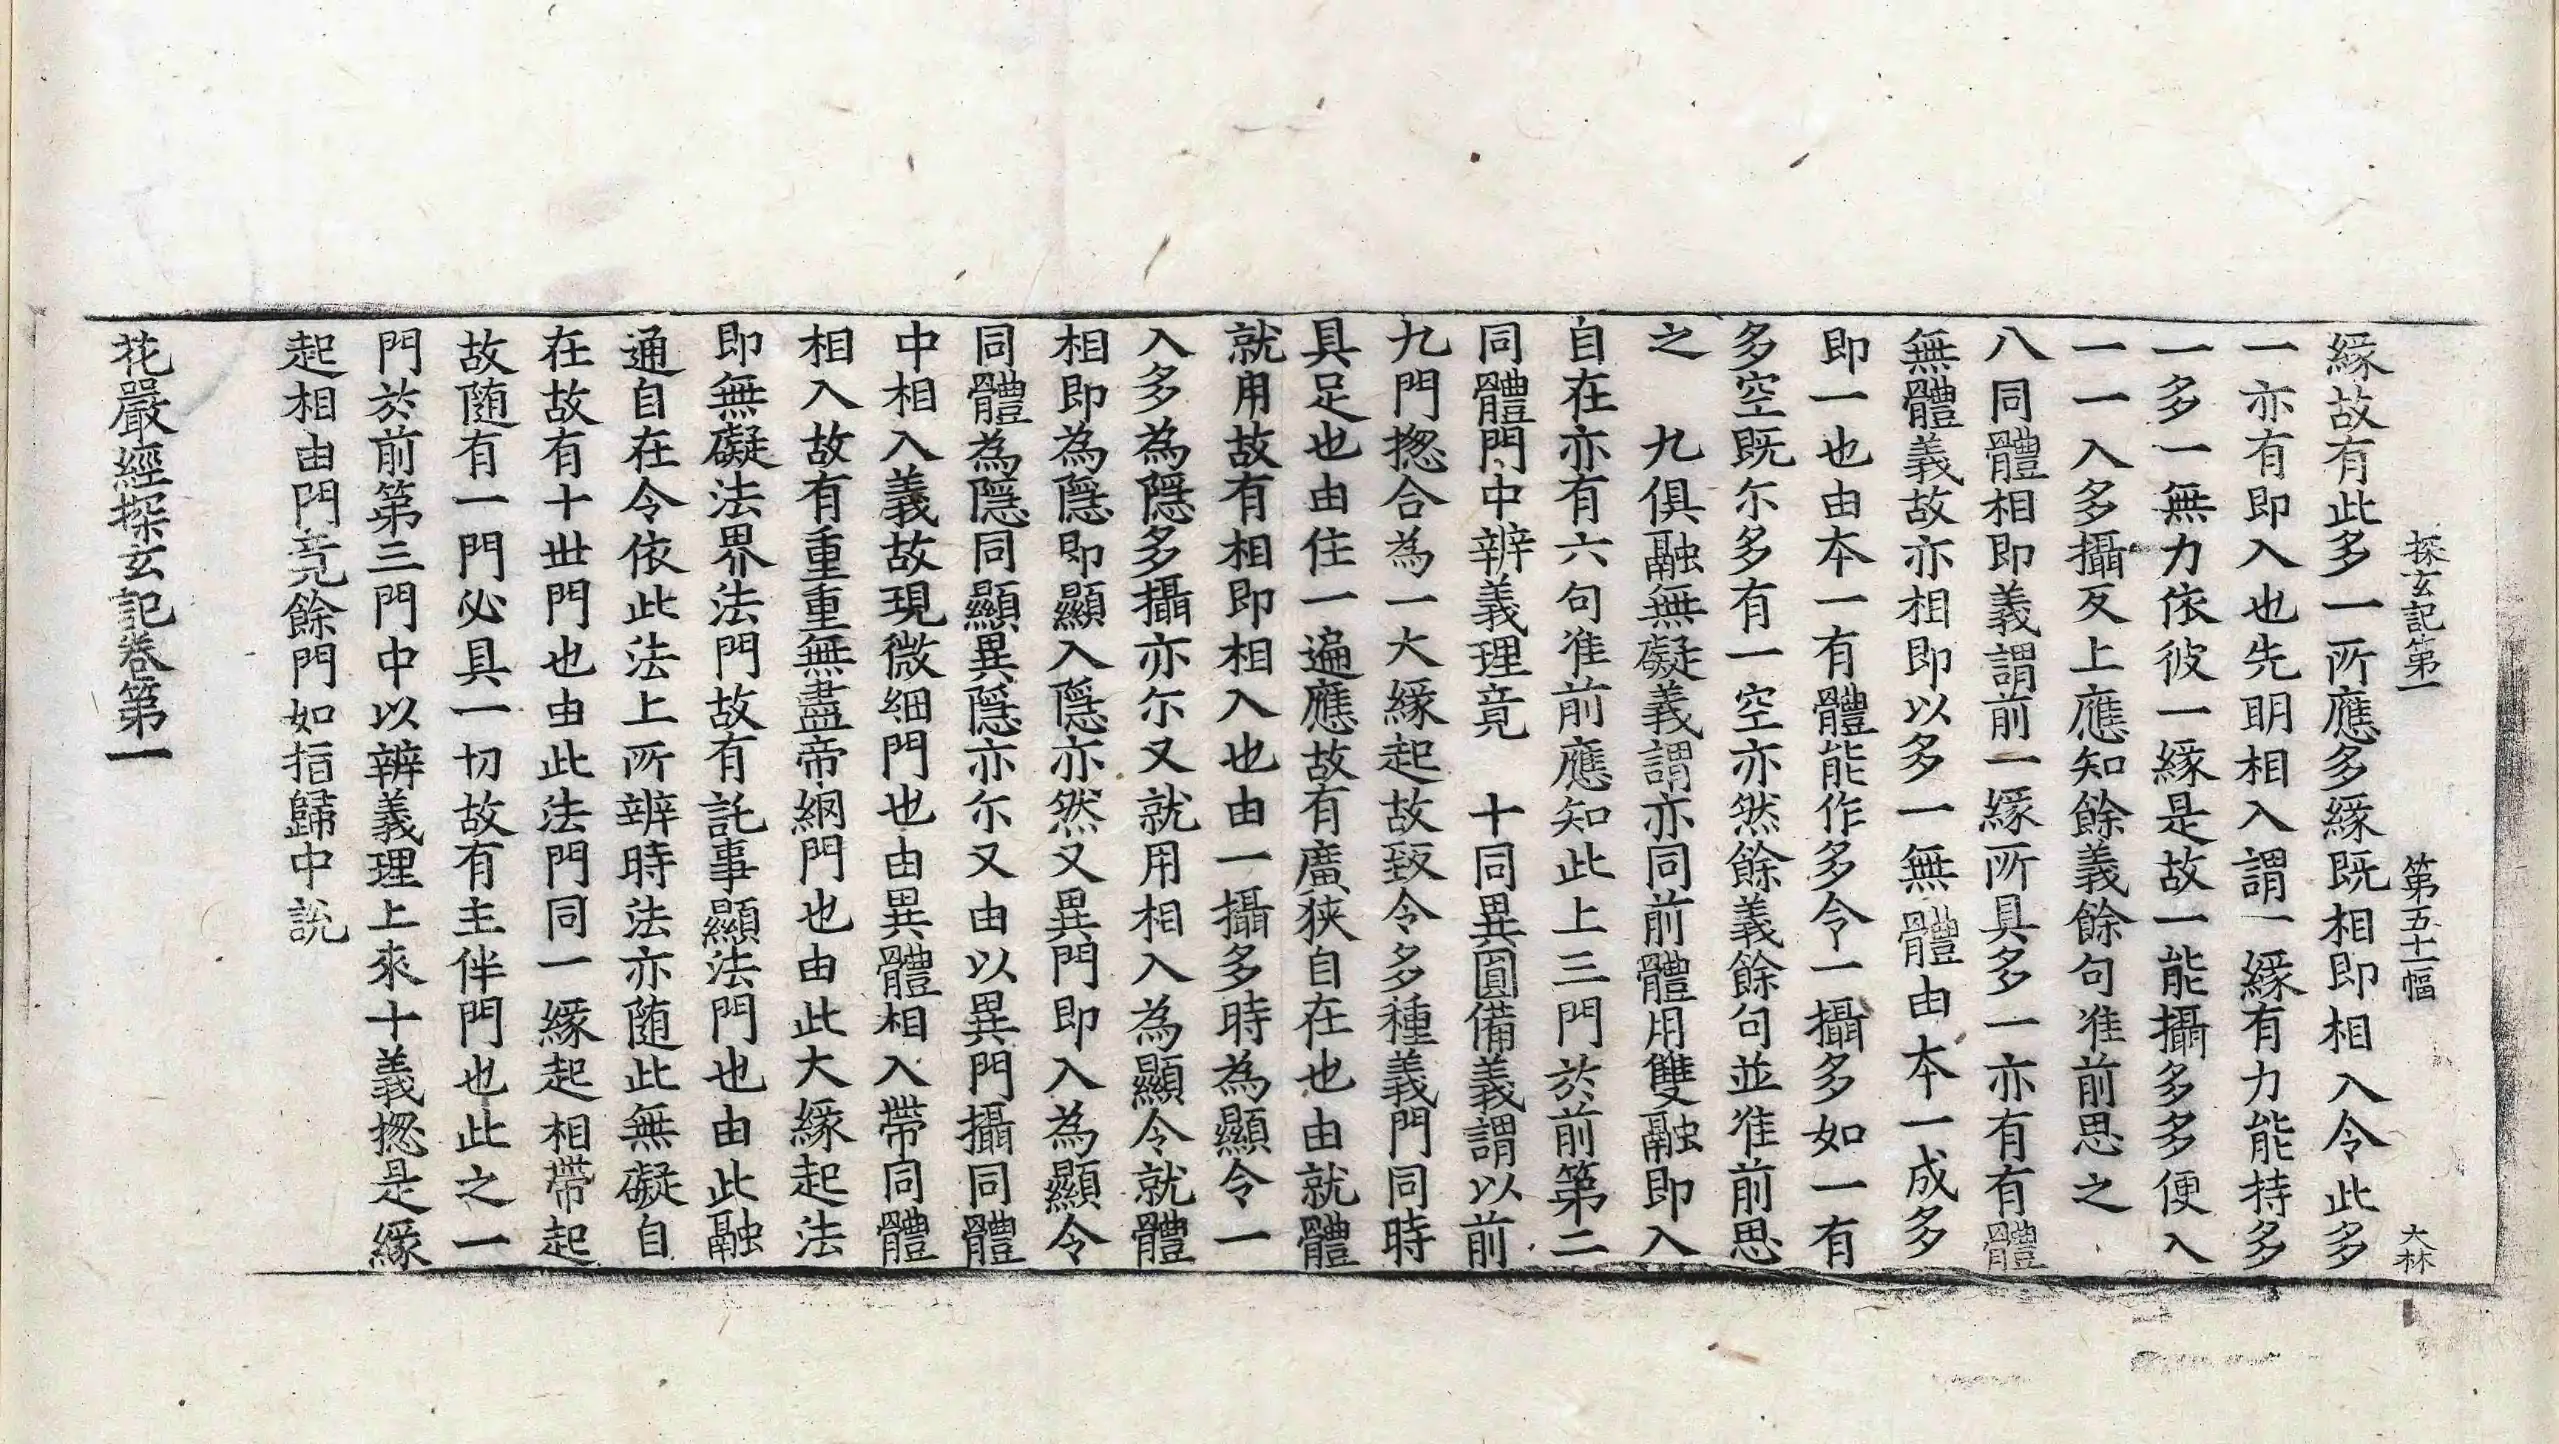 探玄記第一 第五十一幅 大林
緣故有此多一所應多緣既相即相入令此多
一亦有即入也先明相入謂一緣有力能持多
一多一無力依彼一緣是故一能攝多多便入
一一入多攝反上應知餘義餘句准前思之
八同體相即義謂前一緣所具多一亦有有體
無體義故亦相即以多一無體由本一成多
即一也由本一有體能作多令一攝多如一有
多空既尒多有一空亦然餘義餘句並准前思
之 九俱融無礙義謂亦同前體用雙融即入
自在亦有六句准前應知此上三門於前第二
同體門中辨義理竟 十同異圓備義謂以前
九門揔合為一大緣起故致令多種義門同時
具足也由住一遍應故有廣狹自在也由就體
就用故有相即相入也由一攝多時為顯令一
入多為隱多攝亦尒又就用相入為顯令就體
相即為隱即顯入隱亦然又異門即入為顯令
同體為隱同顯異隱亦尒又由以異門攝同體
中相入義故現微細門也由異體相入帶同體
相入故有重重無盡帝網門也由此大緣起法
即無礙法界法門故有託事顯法門也由此融
通自在令依此法上所辨時法亦随此無礙自
在故有十世門也由此法門同一緣起相帶起
故随有一門必具一切故有主伴門也此之一
門於前第三門中以辨義理上來十義揔是緣
起相由門竟餘門如指歸中說
花嚴經探玄記卷第一